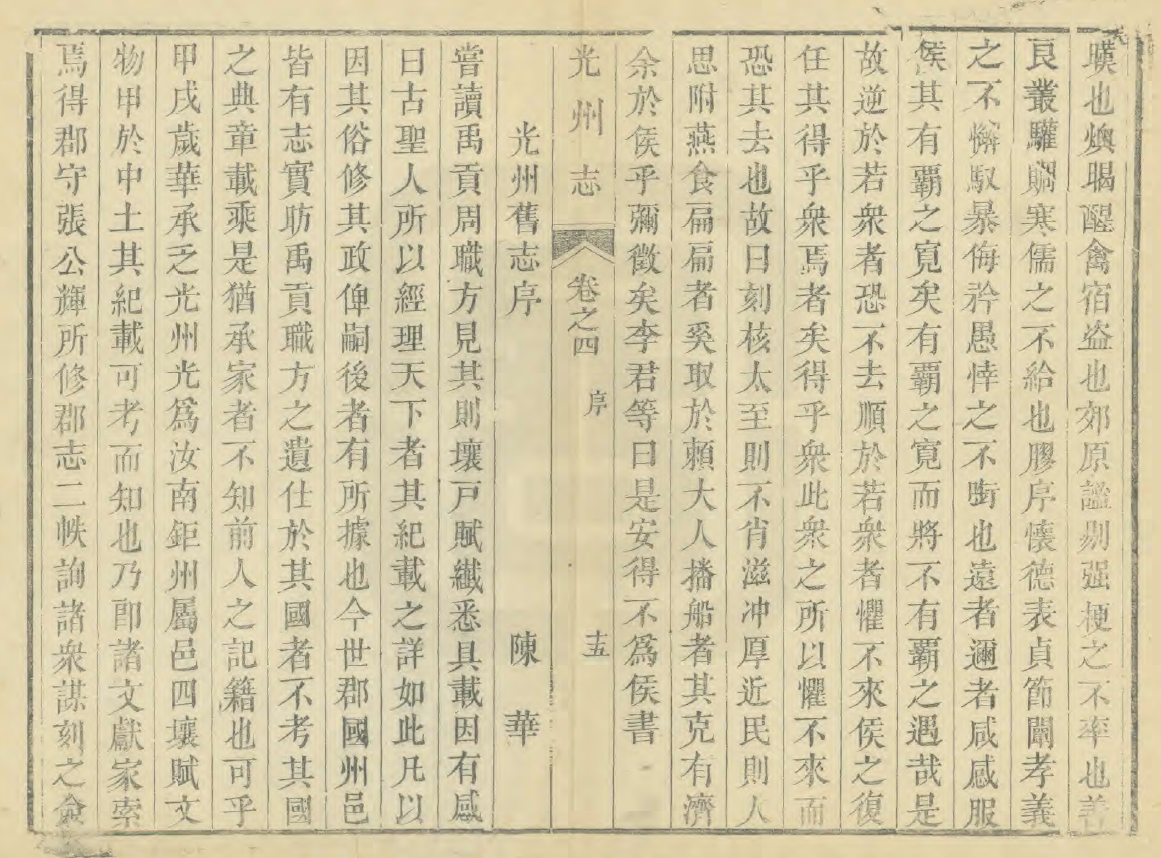 嘆也燠暍醒禽宿盜也郊原謐剔强梗之不率也善
良叢驩賙寒儒之不給也膠序懷德表貞節闡孝義
之不懈馭暴侮矜愚悻之不啣也遠者邇者咸感服
侯其有覇之寛矣有覇之寛而將不有覇之遇哉是
故逆於若衆者恐不去順於若衆者懼不來侯之復
任其得乎衆焉者矣得乎衆此衆之所以懼不來而
恐其去也故曰刻核太至則不肖滋冲厚近民則人
思附燕食扁扁者奚取於賴大人播船者其克有濟
余於侯乎彌徵矣李君等曰是安得不爲侯書
光州志 卷之四 序 十五
光州舊志序 陳華
嘗讀禹貢周職方見其則壤戸賦纎悉具載因有感
曰古聖人所以經理天下者其紀載之詳如此凡以
因其俗修其政俾嗣後者有所據也今世郡國州邑
皆有志實昉禹貢職方之遺仕於其國者不考其國
之典章載乘是猶承家者不知前人之記籍也可乎
甲戌歲華承乏光州光爲汝南鉅州屬邑四壤賦文
物甲於中土其紀載可考而知也乃卽諸文獻家索
焉得郡守張公輝所修郡志二帙詢諸衆謀刻之僉